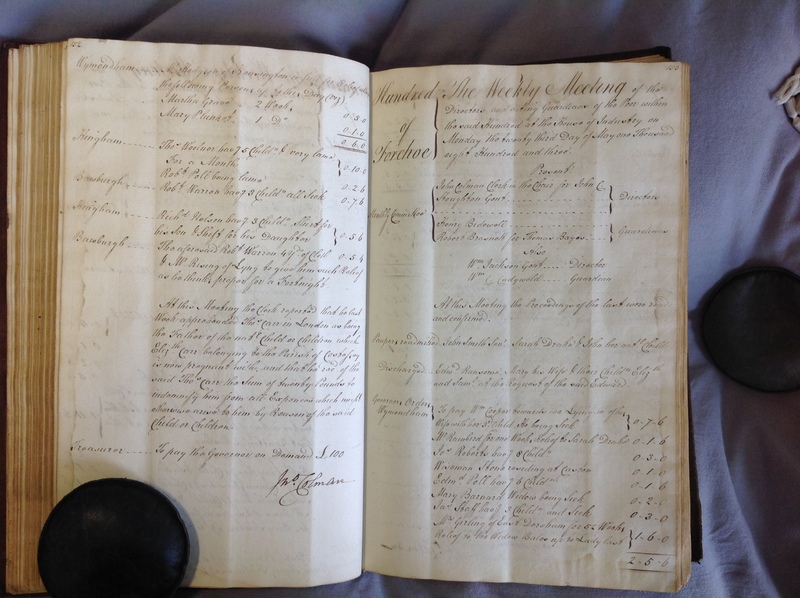 Wymondham
2 Weeks
Mary Plunket 1 Do
0..3..0
0..1..0
0..6..0
Hingham Thos. Woolner hav'g 5 Childn. & very lame
For a Month 0..10..0
Robt. Poll being lame 0..2..6
Barnburgh Robt. Warron hav'g 3 Childn. all Sick 0..7..6
Hingham Richd. Nelson hav'g 3 Childn. Shirt for
his Son & Shift for his Daughter 0..5..6
Barnburgh The aforesaid Robt. Warron 4 yds. of Cloth 0..5..4
& Mr. Rising of Lyng to give them such Relief
as he thinks proper for a Fortnight
At this Meeting the Clerk reported that he last
Week apprehended Thos. Carr in London as being
the Father of the Child or Children which
Elizth. Carr belonging to the Parish of Costessey
is now pregnant with, and that he recd. of the
said Thos. Carr the Sum of twenty Pounds to
indemnify him from all Expences which might
otherwise arise to him by Reason of the said
Child or Children
Treasurer To pay the Governor on Demand £100
Jno. Colman
Hundred of Forehoe
The Weekly Meeting of the
Directors and Acting Guardians of the Poor within
the said Hundred at the House of Industry on
Monday the twenty third Day of May one Thousand
eight Hundred and three
Present
John Colman Clerk in the Course for John C.
Stoughton Gent. Directors
Weekly Committee
Henry Bidewell
Robert Brasnell for Thomas Bayes Guardians
Also
Wm. Jackson Gent. Director
Wm. Cudgwold Guardian
At this Meeting the Proceedings of the last were read
and confirmed.
Paupers readmitted John Smith Senr. Sarah Drake & John her Child
Discharged Edwd. Ransome, Mary his Wife & their Childn. Elizth.
and Saml. at the request of the said Edward
Governors Orders
Wymondham
To pay Wm. Cooper towards the Lying in of his
Wife with her 3d. Child, he being Sick 0..7..6
for one Week, Relief to Sarah Drake 0..1..6
Jas. Roberts hav'g 8 Childn. 0..3..0
Wiseman Stone residing at Caston 0..1..0
Edmd. Poll hav'g 6 Childn. 0..1..6
Mary Barnard Widow being Sick 0..2..0
Jas. hav'g 3 Childn. and Sick 0..3..0
Mr. Girling of East Dereham for 52 Weeks
Relief to the Widow Bales up to Lady last 1..6..0
2..5..6